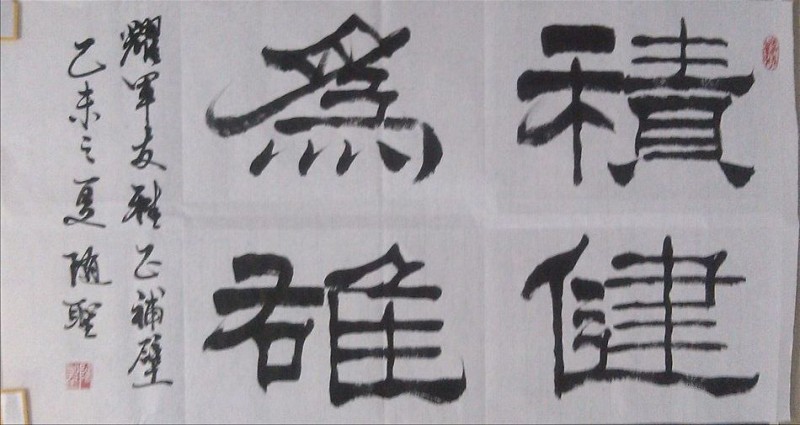 積健
為雄
耀軍友雅正補壁
乙未之夏随聖